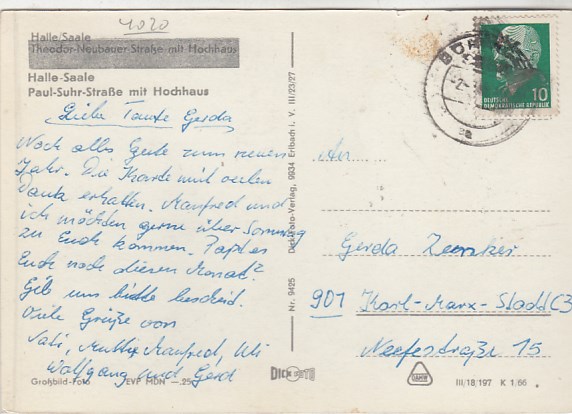 4020
Halle/Saale
Theodor-Neubauer-Straße mit Hochhaus
Halle-Saale
Paul-Suhr-Straße mit Hochhaus
Liebe Tante Gerda
Noch alles Gute zum neuen
Jahr. Die Karte mit vielen
Dank erhalten. Manfred und
ich möchten gerne über Sonntag
zu Euch kommen. Paßt es
Euch noch diesen Monat?
Gib uns bitte bescheid.
Viele Grüße von
Vati, Mutti, Manfred, Uli
Wolfgang und Gerd
Großbild-Foto EVP MDN —.25
Nr. 9425 Dick-Foto-Verlag, 9934 Erlbach i. V. III/23/27
DICK FOTO
BÖH
10
DEUTSCHE
DEMOKRATISCHE REPUBLIK
An
Gerda Zenker
901 Karl-Marx-Stadt
Neefestraße 15
III/18/197 K 1/66